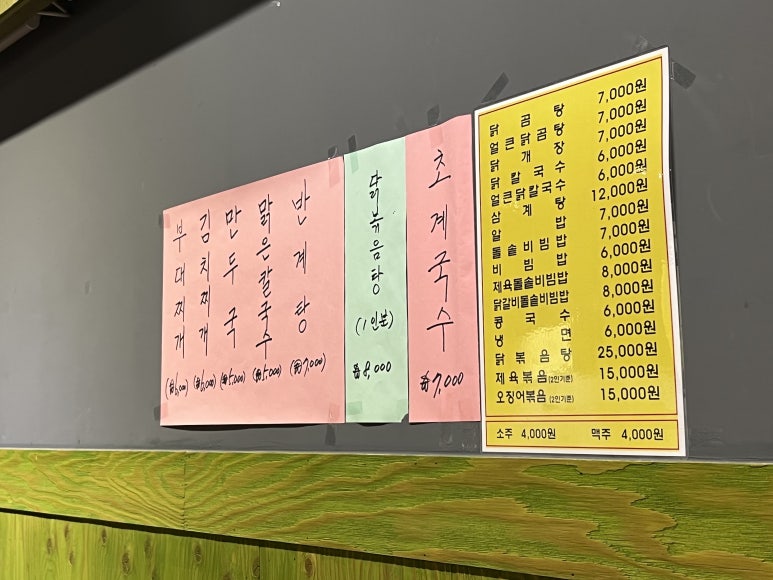 부대찌개 (₩6,000)
김치찌개 (₩6,000)
만두국 (₩5,000)
맑은칼국수 (₩5,000)
반계탕 (₩7,000)
닭볶음탕 (1인분) ₩8,000
초계국수 ₩7,000
닭곰탕 7,000원
얼큰닭곰탕 7,000원
닭개장 7,000원
닭칼국수 6,000원
얼큰닭칼국수 6,000원
삼계탕 12,000원
알밥 7,000원
돌솥비빔밥 7,000원
비빔밥 6,000원
제육돌솥비빔밥 8,000원
닭갈비돌솥비빔밥 8,000원
콩국수 6,000원
냉면 6,000원
닭볶음탕 25,000원
제육볶음(2인기준) 15,000원
오징어볶음(2인기준) 15,000원
소주 4,000원 맥주 4,000원